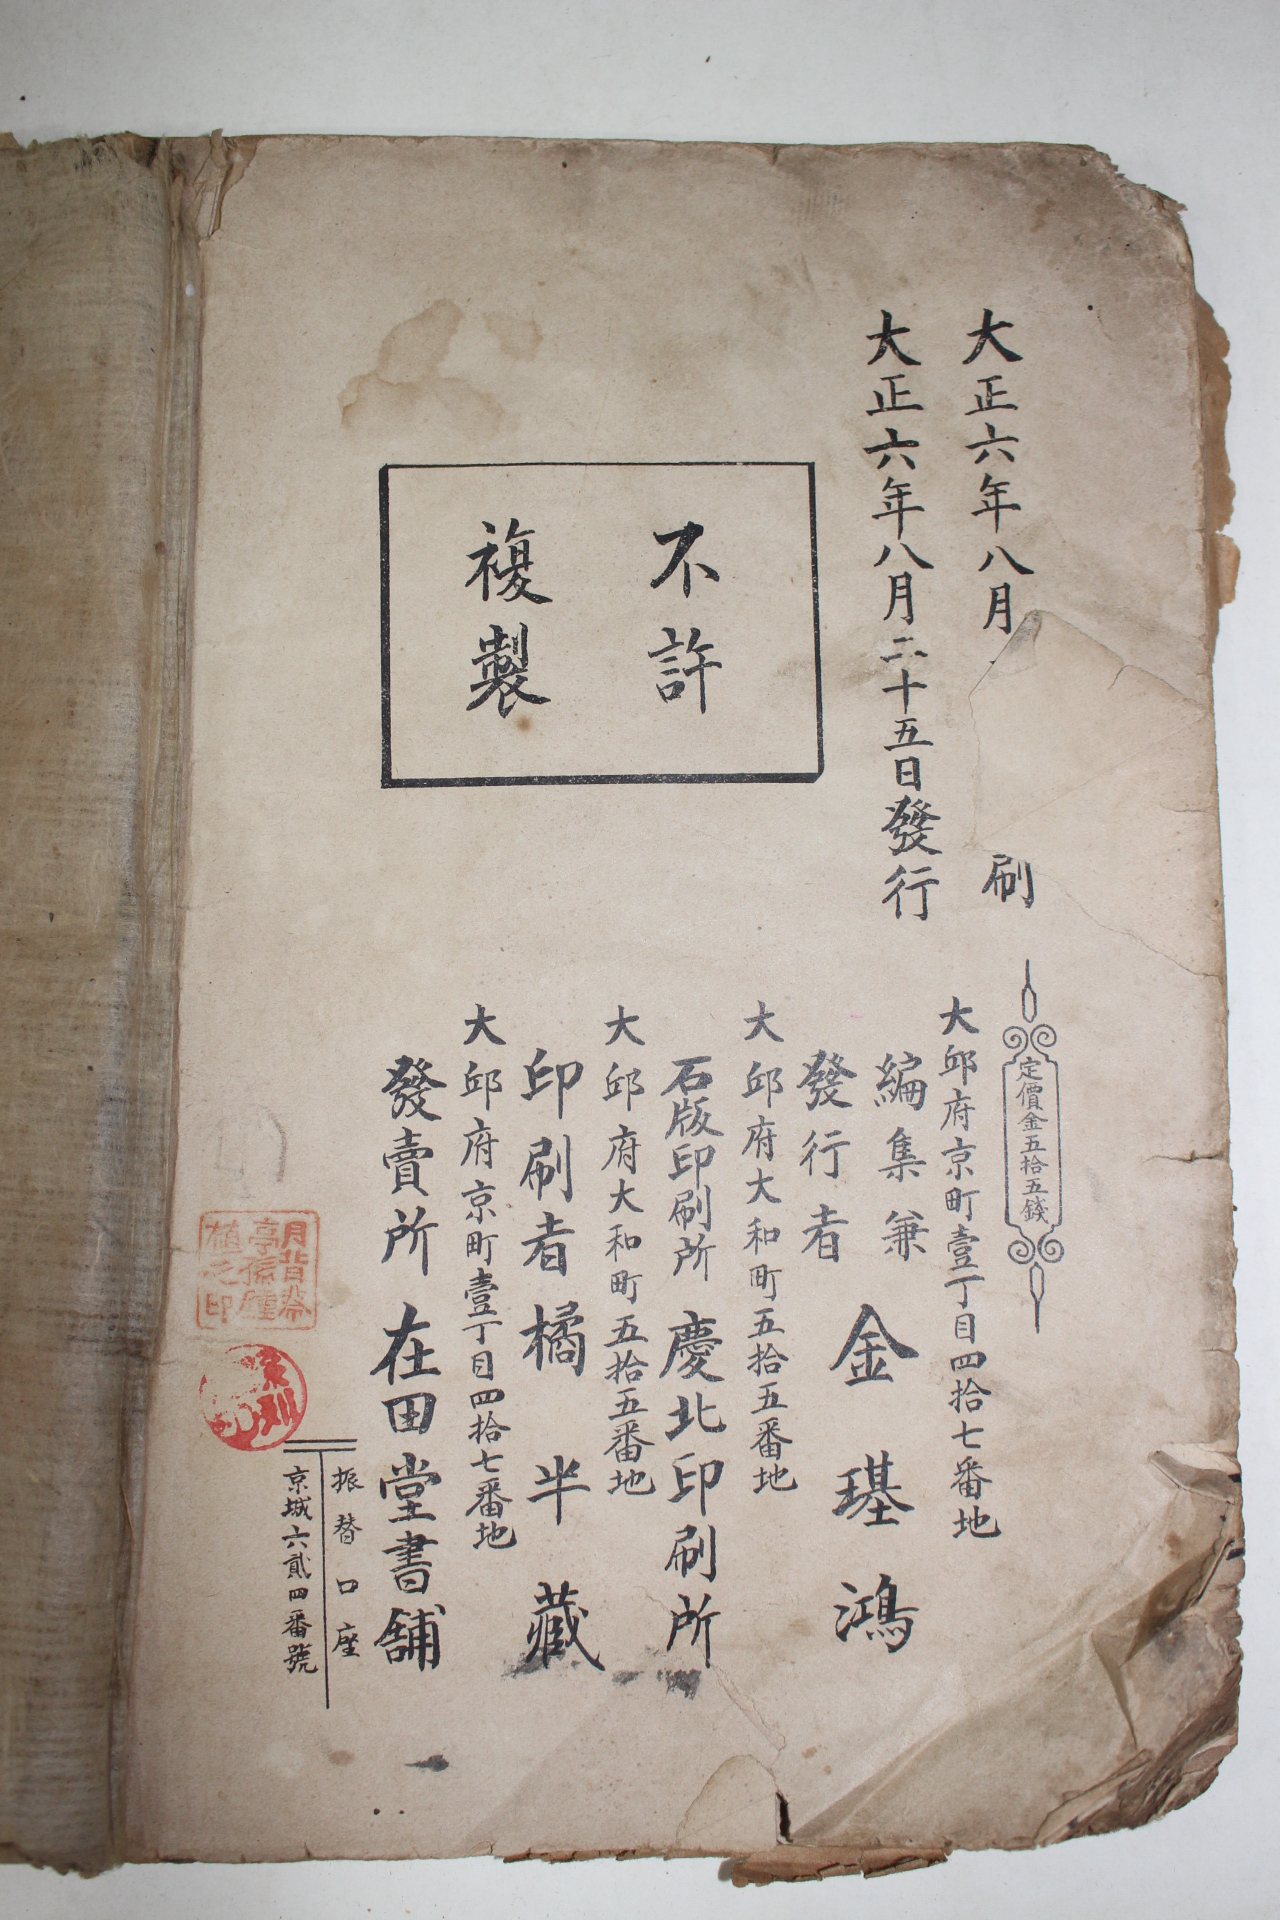 大正六年八月
刷
大正六年八月二十五日發行
不許
複製
定價金五拾五錢
大邱府京町壹丁目四拾七番地
編集兼
發行者
金璂鴻
大邱府大和町五拾五番地
石版印刷所 慶北印刷所
大邱府大和町五拾五番地
印刷者 橘半藏
大邱府京町壹丁目四拾七番地
發賣所 在田堂書舖
振替口座
京城六貳四番號